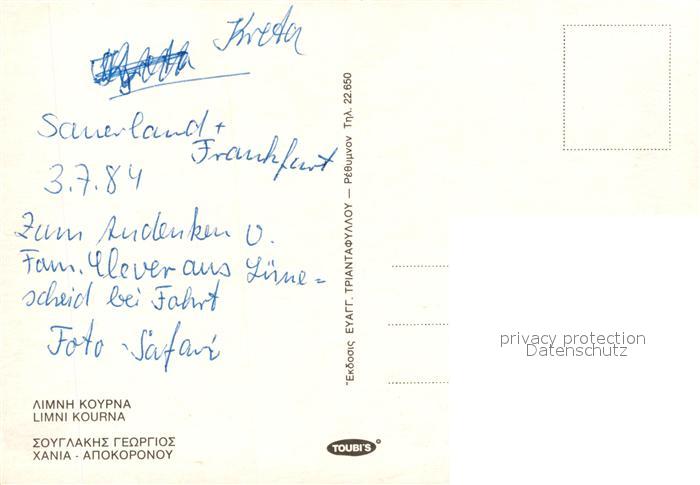 Kreta
Sauerland +
Frankfurt
3.7.84
Zum Andenken v.
Fam. Clever aus Lüne-
scheid bei Fahrt
Foto - Safari
ΛΙΜΝΗ ΚΟΥΡΝΑ
LIMNI KOURNA
ΣΟΥΓΛΑΚΗΣ ΓΕΩΡΓΙΟΣ
ΧΑΝΙΑ - ΑΠΟΚΟΡΟΝΟΥ
Ἔκδοσις ΕΥΑΓΓ. ΤΡΙΑΝΤΑΦΥΛΛΟΥ — Ρέθυμνον Τηλ. 22.650
TOUBI'S
privacy protection
Datenschutz